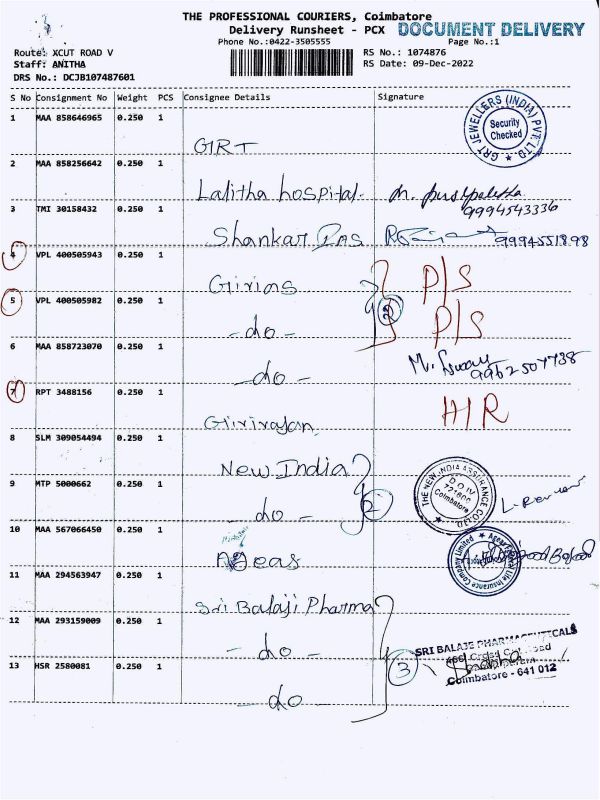 THE PROFESSIONAL COURIERS, Coimbatore
Delivery Runsheet - PCX
DOCUMENT DELIVERY
Phone No.:0422-3505555
Page No.:1
Route: XCUT ROAD V
RS No.: 1074876
Staff: ANITHA
RS Date: 09-Dec-2022
DRS No.: DCJB107487601
S No Consignment No Weight PCS Consignee Details Signature
1 MAA 858646965 0.250 1
GRT
GRT JEWELLERS (INDIA) PVT. LTD.
Security Checked
2 MAA 858256642 0.250 1
Lalitha hospital.
9994543336
3 TMI 30158432 0.250 1
Shankar Ins
9994551898
4 VPL 400505943 0.250 1
Girias
P/S
5 VPL 400505982 0.250 1
- do -
P/S
6 MAA 858723070 0.250 1
- do -
9962507738
7 RPT 3488156 0.250 1
Girirajan
H/R
8 SLM 309054494 0.250 1
New India
THE NEW INDIA ASSURANCE CO. LTD.
D.O.IV
721600
Coimbatore
9 MTP 5000662 0.250 1
- do -
2
10 MAA 567066450 0.250 1
Ageas
Life Insurance Company Limited
11 MAA 294563947 0.250 1
Sri Balaji Pharma
12 MAA 293159009 0.250 1
- do -
3
SRI BALAJE PHARMACEUTICALS
Coimbatore - 641 012
13 HSR 2580081 0.250 1
- do -